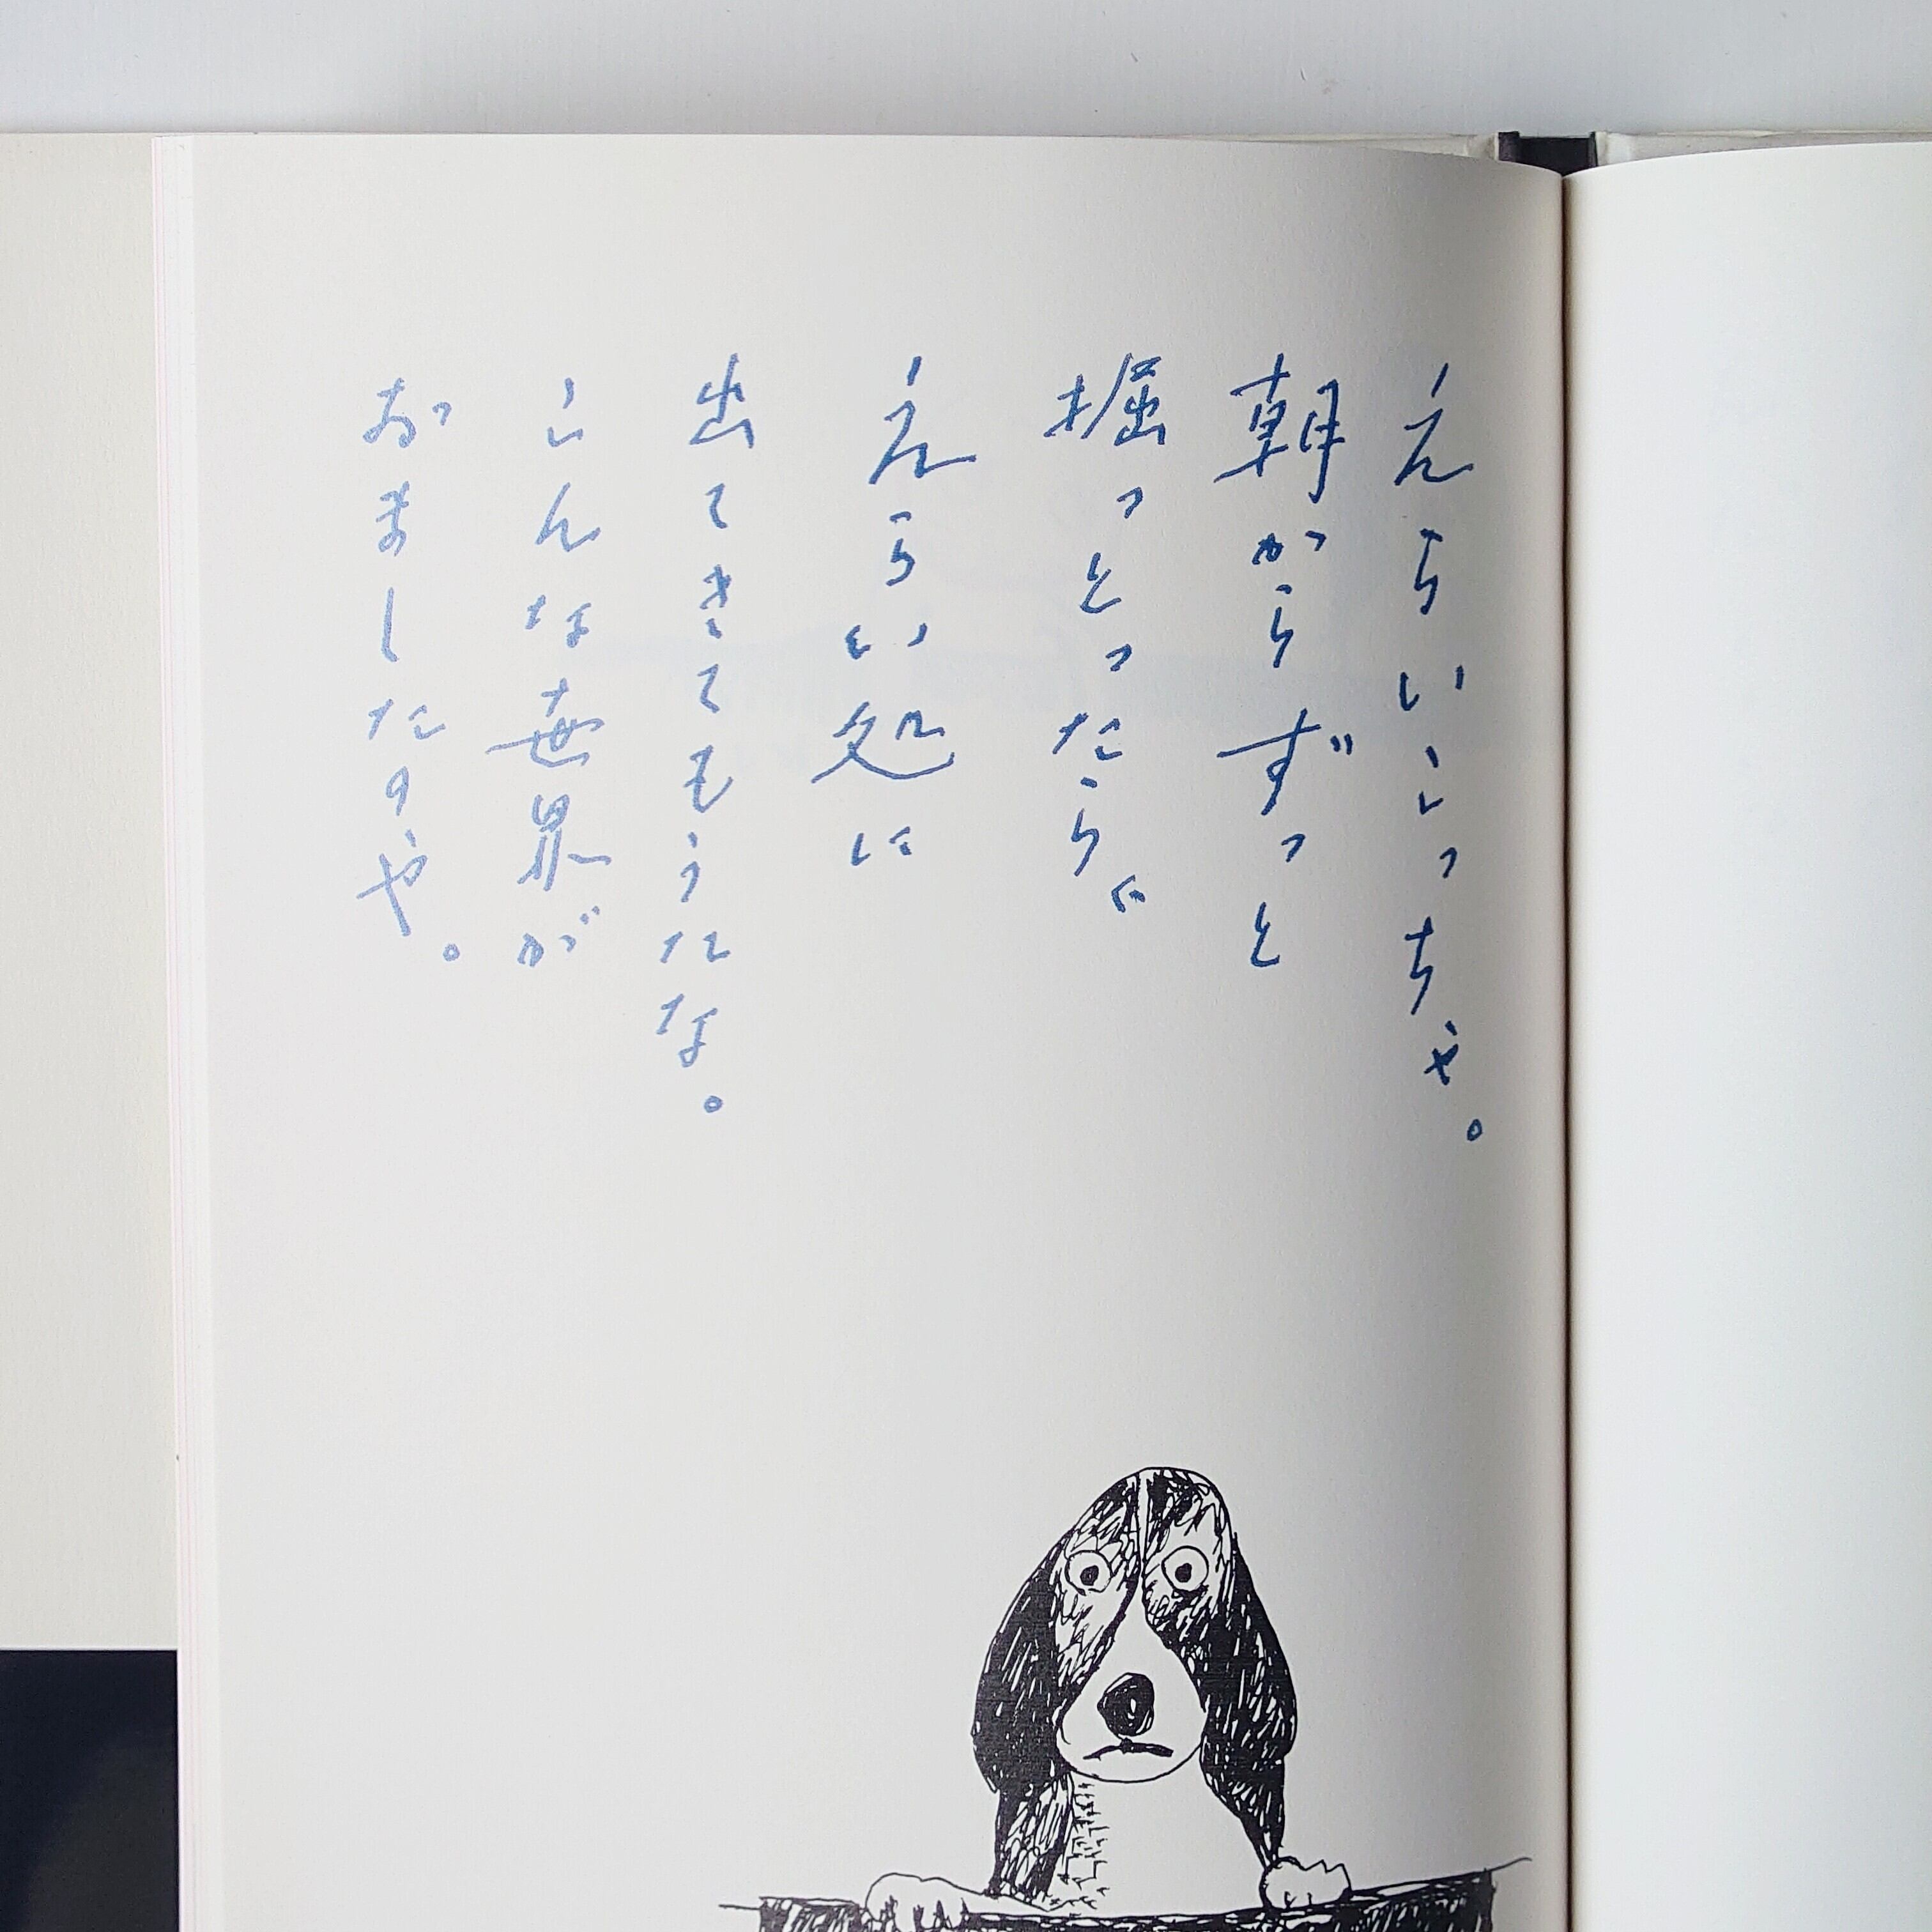 えらいこっちゃ。
朝からずっと
掘っとったら
えらい処に
出てきてもうたな。
こんな世界が
おましたのや。